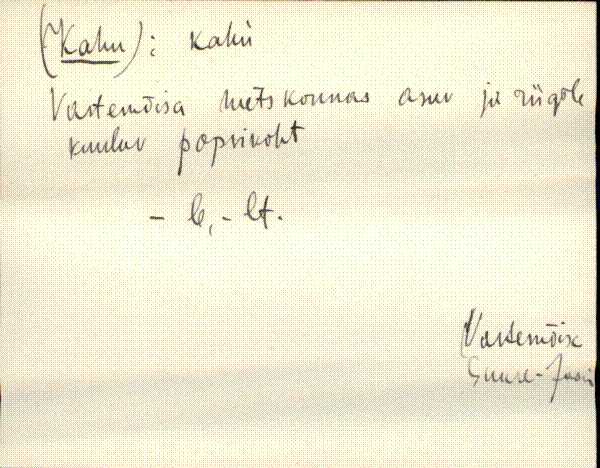 (Kahu): kahu
Vastemõisa metskonnas asuv ja riigile
kuuluv popsikoht
- le, - lt.
Vastemõisa
Suure-Jaani